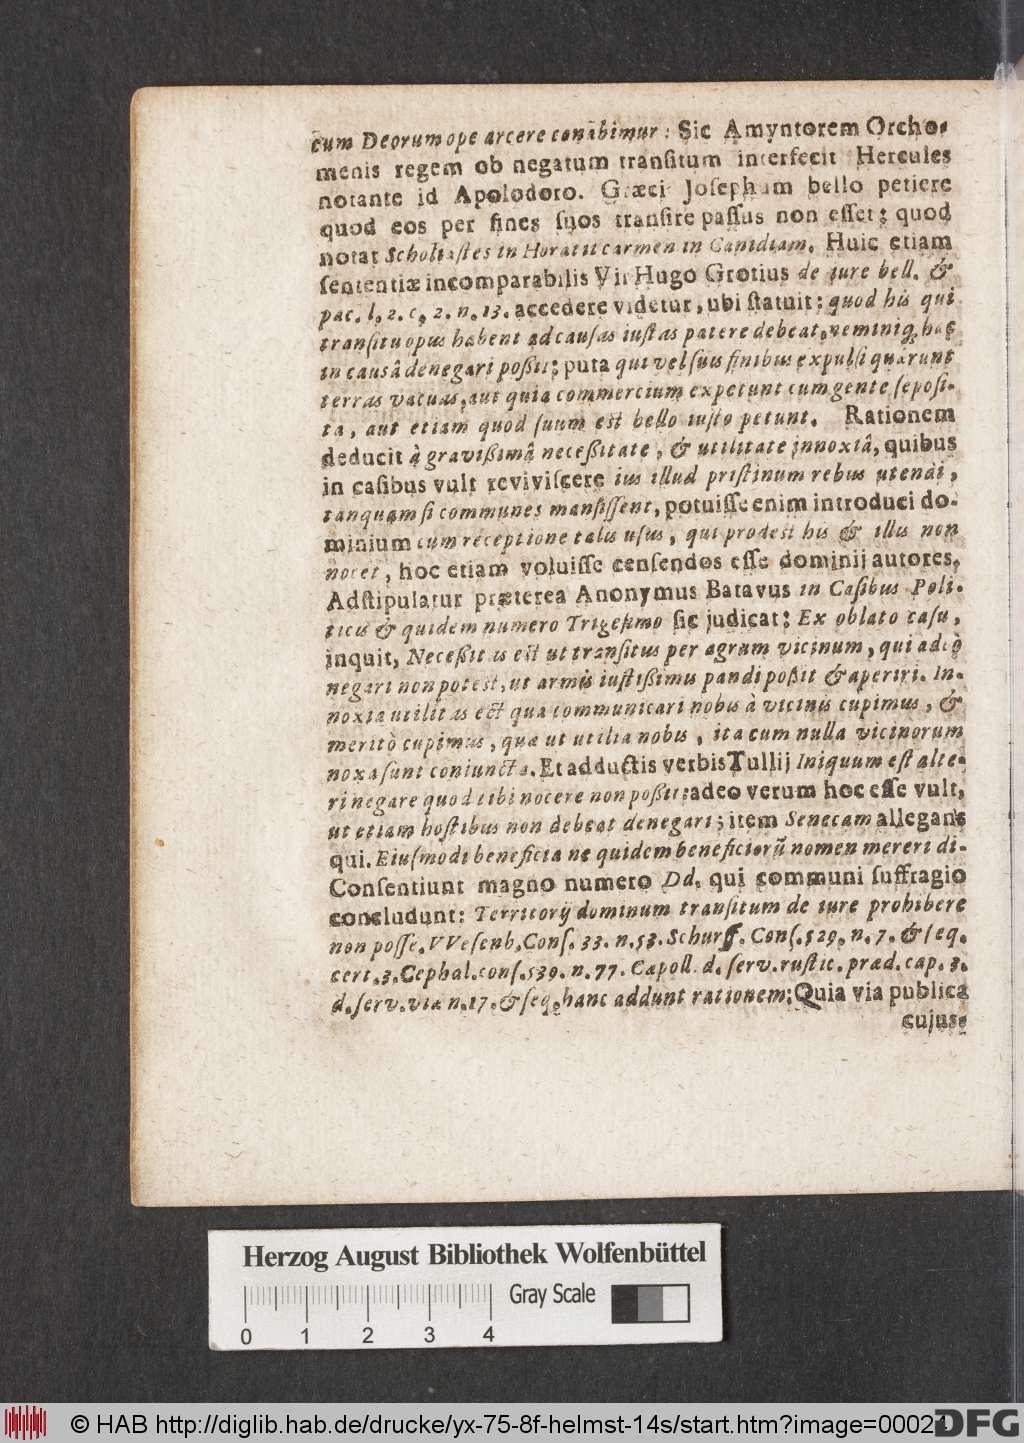 cum Deorum ope arcere conabimur: Sic Amyntorem Orcho-
menis regem ob negatum tranſitum interfecit Hercules
notante id Apolodoro. Græci Joſephum bello petiere
quod eos per fines ſuos tranſire paſſus non eſſet; quod
notat Scholiaſtes in Horatii carmen in Canidiam. Huic etiam
ſententiæ incomparabilis Vir Hugo Grotius de iure bell. &
pac. l. 2. c. 2. n. 13. accedere videtur, ubi ſtatuit: quod his qui
tranſitu opus habent ad cauſas iuſtas patere debeat, neminiq́ hac
in causâ denegari poßit; puta qui vel ſuis finibus expulſi quærunt
terras vacuas, aut quia commercium expetunt cum gente ſepoſi-
ta, aut etiam quod ſuum est bello iuſto petunt. Rationem
deducit à gravißimâ neceßitate, & utilitate innoxiâ, quibus
in caſibus vult reviviſcere ius illud priſtinum rebus utendi,
tanquam ſi communes manſiſſent, potuiſſe enim introduci do-
minium cum receptione talis uſus, qui prodest his & illis non
nocet, hoc etiam voluiſſe cenſendos eſſe dominij autores.
Adſtipulatur præterea Anonymus Batavus in Caſibus Poli-
ticis & quidem numero Trigeſimo ſic judicat: Ex oblato caſu,
inquit, Neceßitas est ut tranſitus per agrum vicinum, qui adeò
negari non potest, ut armis iuſtißimus pandi poßit & aperiri. In-
noxia utilitas est qua communicari nobis à vicinis cupimus, &
meritò cupimus, quæ ut utilia nobis, ita cum nulla vicinorum
noxa ſunt coniuncta. Et adductis verbis Tullij Iniquum eſt alte-
ri negare quod tibi nocere non poßit: adeo verum hoc eſſe vult,
ut etiam hoſtibus non debeat denegari; item Senecam allegans
qui. Eiuſmodi beneficia ne quidem beneficiorũ nomen mereri di-
Conſentiunt magno numero Dd. qui communi ſuffragio
concludunt: Territorij dominum tranſitum de iure prohibere
non poſſe. VVeſenb. Conſ. 33. n. 53. Schurff. Conſ. 529. n. 7. & ſeq.
cert. 3. Cephal. conſ. 539. n. 77. Capoll. d. ſerv. ruſtic. præd. cap. 3.
d. ſerv. via n. 17. & ſeq. hanc addunt rationem; Quia via publica
cujus-
Herzog August Bibliothek Wolfenbüttel
Gray Scale
0 1 2 3 4
© HAB http://diglib.hab.de/drucke/yx-75-8f-helmst-14s/start.htm?image=00024
DFG